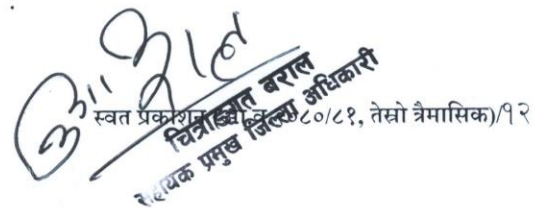 स्वत प्रकाशन (आ.व. २०८०/८१, तेस्रो त्रैमासिक)/१२
चित्राङ्गत बराल
सहायक प्रमुख जिल्ला अधिकारी